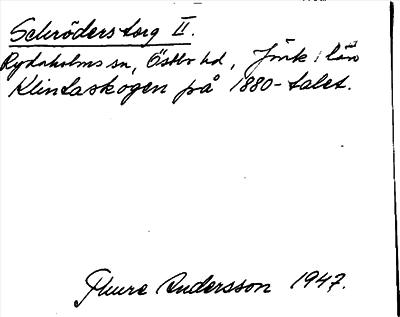 Schröders torg II.
Rydaholms sn, Östbo hd, Jönk. län
Klintaskogen på 1880-talet.
Thure Andersson 1947.